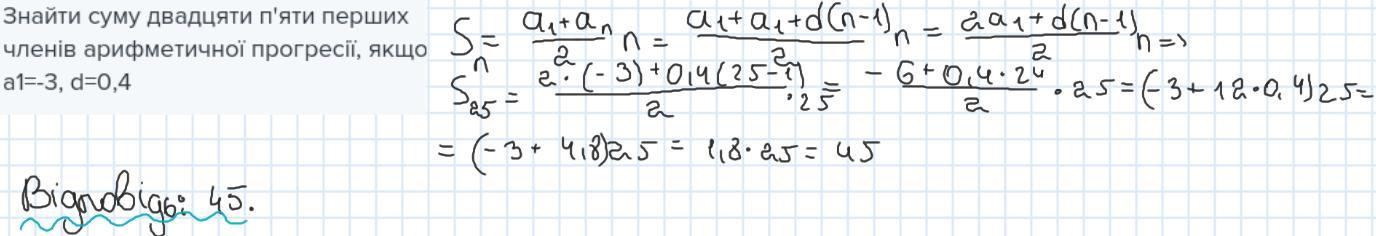 Знайти суму двадцяти п'яти перших
членів арифметичної прогресії, якщо
a1=-3, d=0,4
Sₙ = (a₁+aₙ)/2 n = (a₁+a₁+d(n-1))/2 n = (2a₁+d(n-1))/2 n =>
S₂₅ = (2·(-3)+0,4(25-1))/2 ·25 = (-6+0,4·24)/2 ·25 = (-3+12·0,4)25=
= (-3+4,8)25 = 1,8·25 = 45
Відповідь: 45.